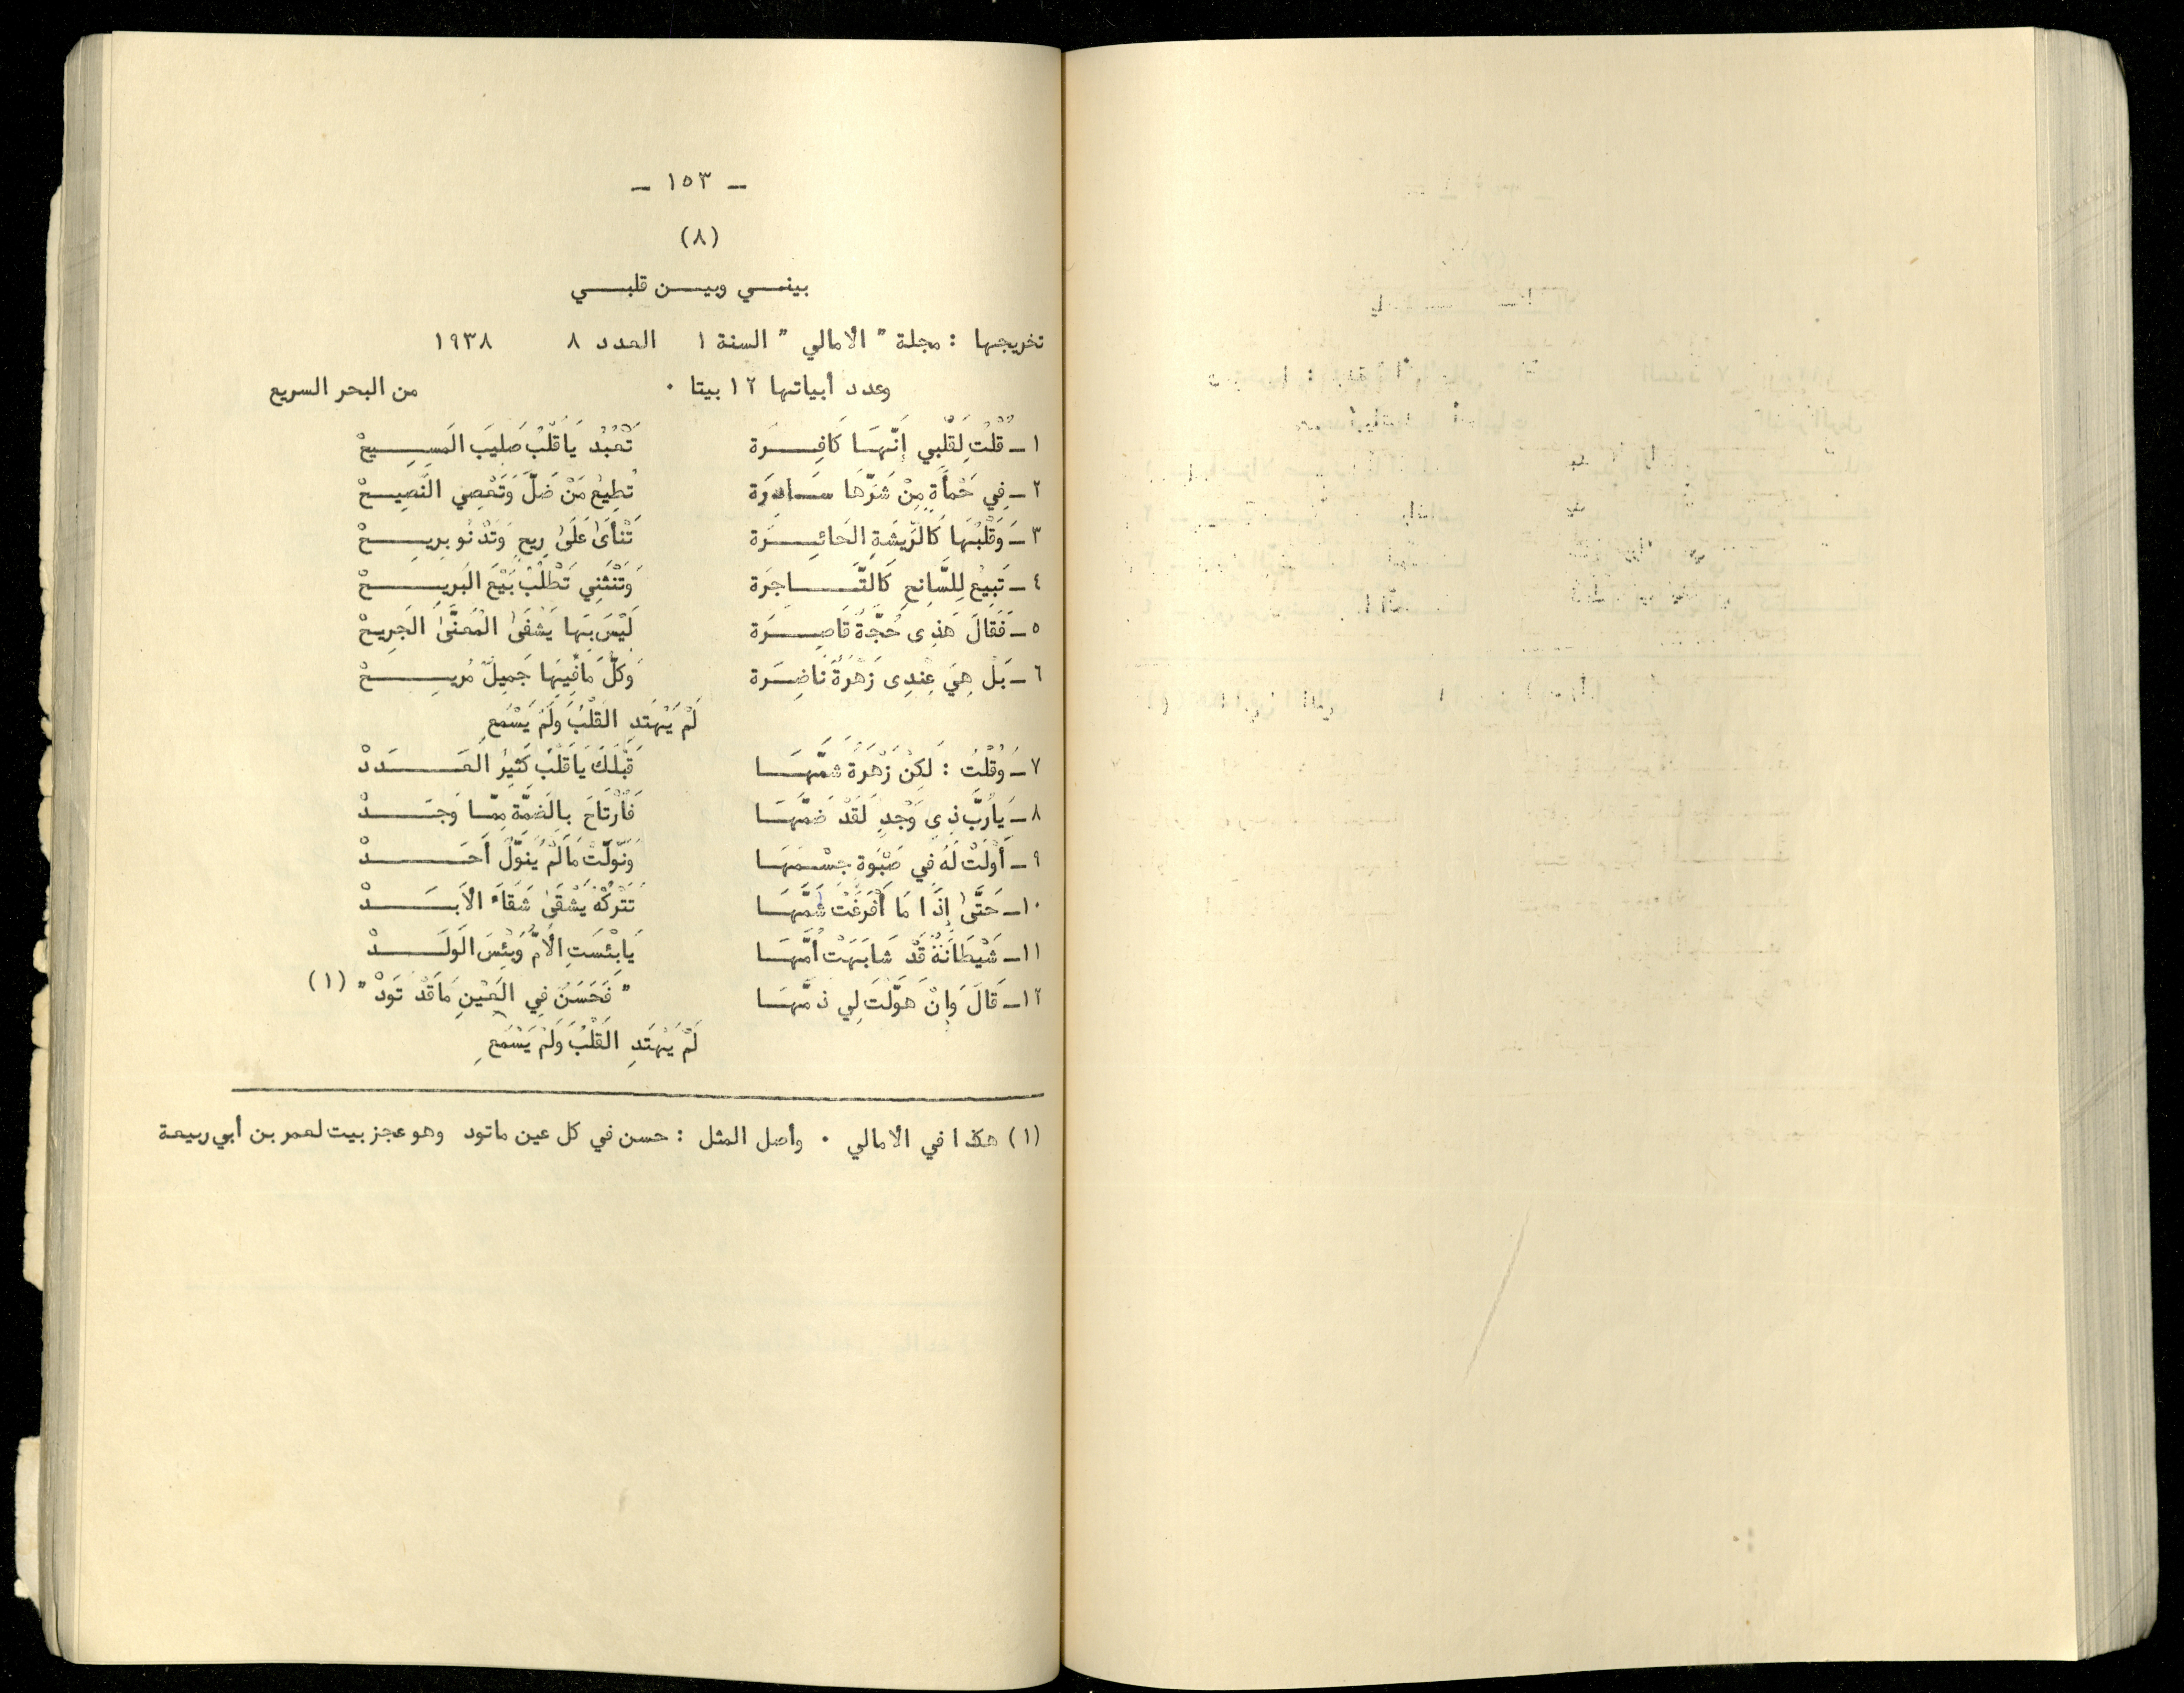 ـ ١٥٣ ـ
(٨)
بيني وبين قلبي
تخريجها : مجلة " الأمالي " السنة ١ العدد ٨ ١٩٣٨
وعدد أبياتها ١٢ بيتا . من البحر السريع
١ـ قُلْتُ لِقَلْبِي إِنَّهَا كَافِرَة تَعْبُدُ يَاقَلْبُ صَلِيبَ المَسِيحْ
٢ـ فِي حَمْأَةٍ مِنْ شَرِّهَا سَادِرَة تُطِيعُ مَنْ ضَلَّ وَتَعْصِي النَّصِيحْ
٣ـ وَقَلْبُهَا كَالرِّيشَةِ الحَائِرَة تَنْأَىٰ عَلَىٰ رِيحٍ وَتَدْنُو بِرِيحْ
٤ـ تَبِيعُ لِلسَّانِحِ كَالتَّاجِرَة وَتَنْثَنِي تَطْلُبُ بَيْعَ البَرِيحْ
٥ـ فَقَالَ هَذِى حُجَّةٌ قَاصِرَة لَيْسَ بِهَا يَشْفَىٰ المُعَنَّىٰ الجَرِيحْ
٦ـ بَلْ هِيَ عِنْدِى زَهْرَةٌ نَاضِرَة وَكلُّ مَافِيهَا جَمِيلٌ مُرِيحْ
لَمْ يَهْتَدِ القَلْبُ وَلَمْ يَسْمَعِ
٧ـ وَقُلْتُ : لَكِنْ زَهْرَةٌ شَمَّهَا قَبْلَكَ يَاقَلْبُ كَثِيرُ العَدَدْ
٨ـ يَارُبَّ ذِي وَجْدٍ لَقَدْ ضَمَّهَا فَارْتَاحَ بِالضَمَّةِ مِمَّا وَجَدْ
٩ـ أَوْلَتْ لَهُ فِي صَبْوَةٍ جِسْمَهَا وَنَوَّلَتْ مَالَمْ يُنَوِّلْ أَحَدْ
١٠ـ حَتَّىٰ إِذَا مَا أَفْرَغَتْ سُمَّهَا تَتْرُكُهُ يَشْقَىٰ شَقَاءَ الأَبَدْ
١١ـ شَيْطَانَةٌ قَدْ شَابَهَتْ أُمَّهَا يَابِئْسَتِ الأُمُّ وَبِئْسَ الوَلَدْ
١٢ـ قَالَ وَإِنْ هَوَّلْتَ لِي ذمَّهَا " فَحَسَنٌ فِي العَيْنِ مَاقَدْ تَوَدْ " (١)
لَمْ يَهْتَدِ القَلْبُ وَلَمْ يَسْمَعِ
(١) هكذا في الأمالي . وأصل المثل : حسن في كل عين ماتود وهو عجز بيت لعمر بن أبي ربيعة